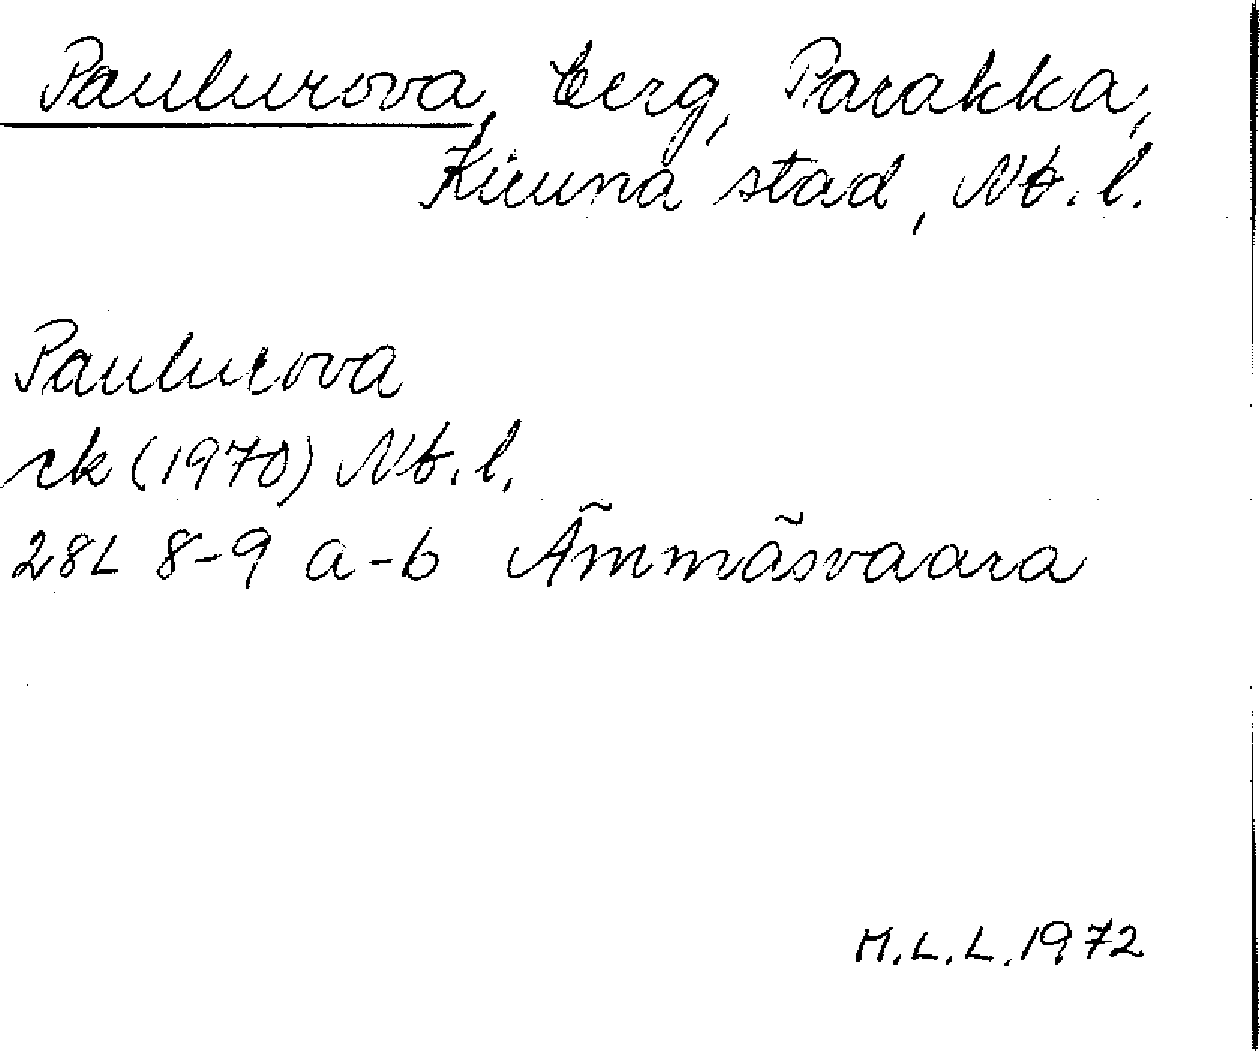 Paulurova, berg, Parakka,
Kiruna stad, Nb. l.
Paulurova
rk (1970) Nb. l.
28L 8-9 a-b Ämmäsvaara
M.L.L. 1972